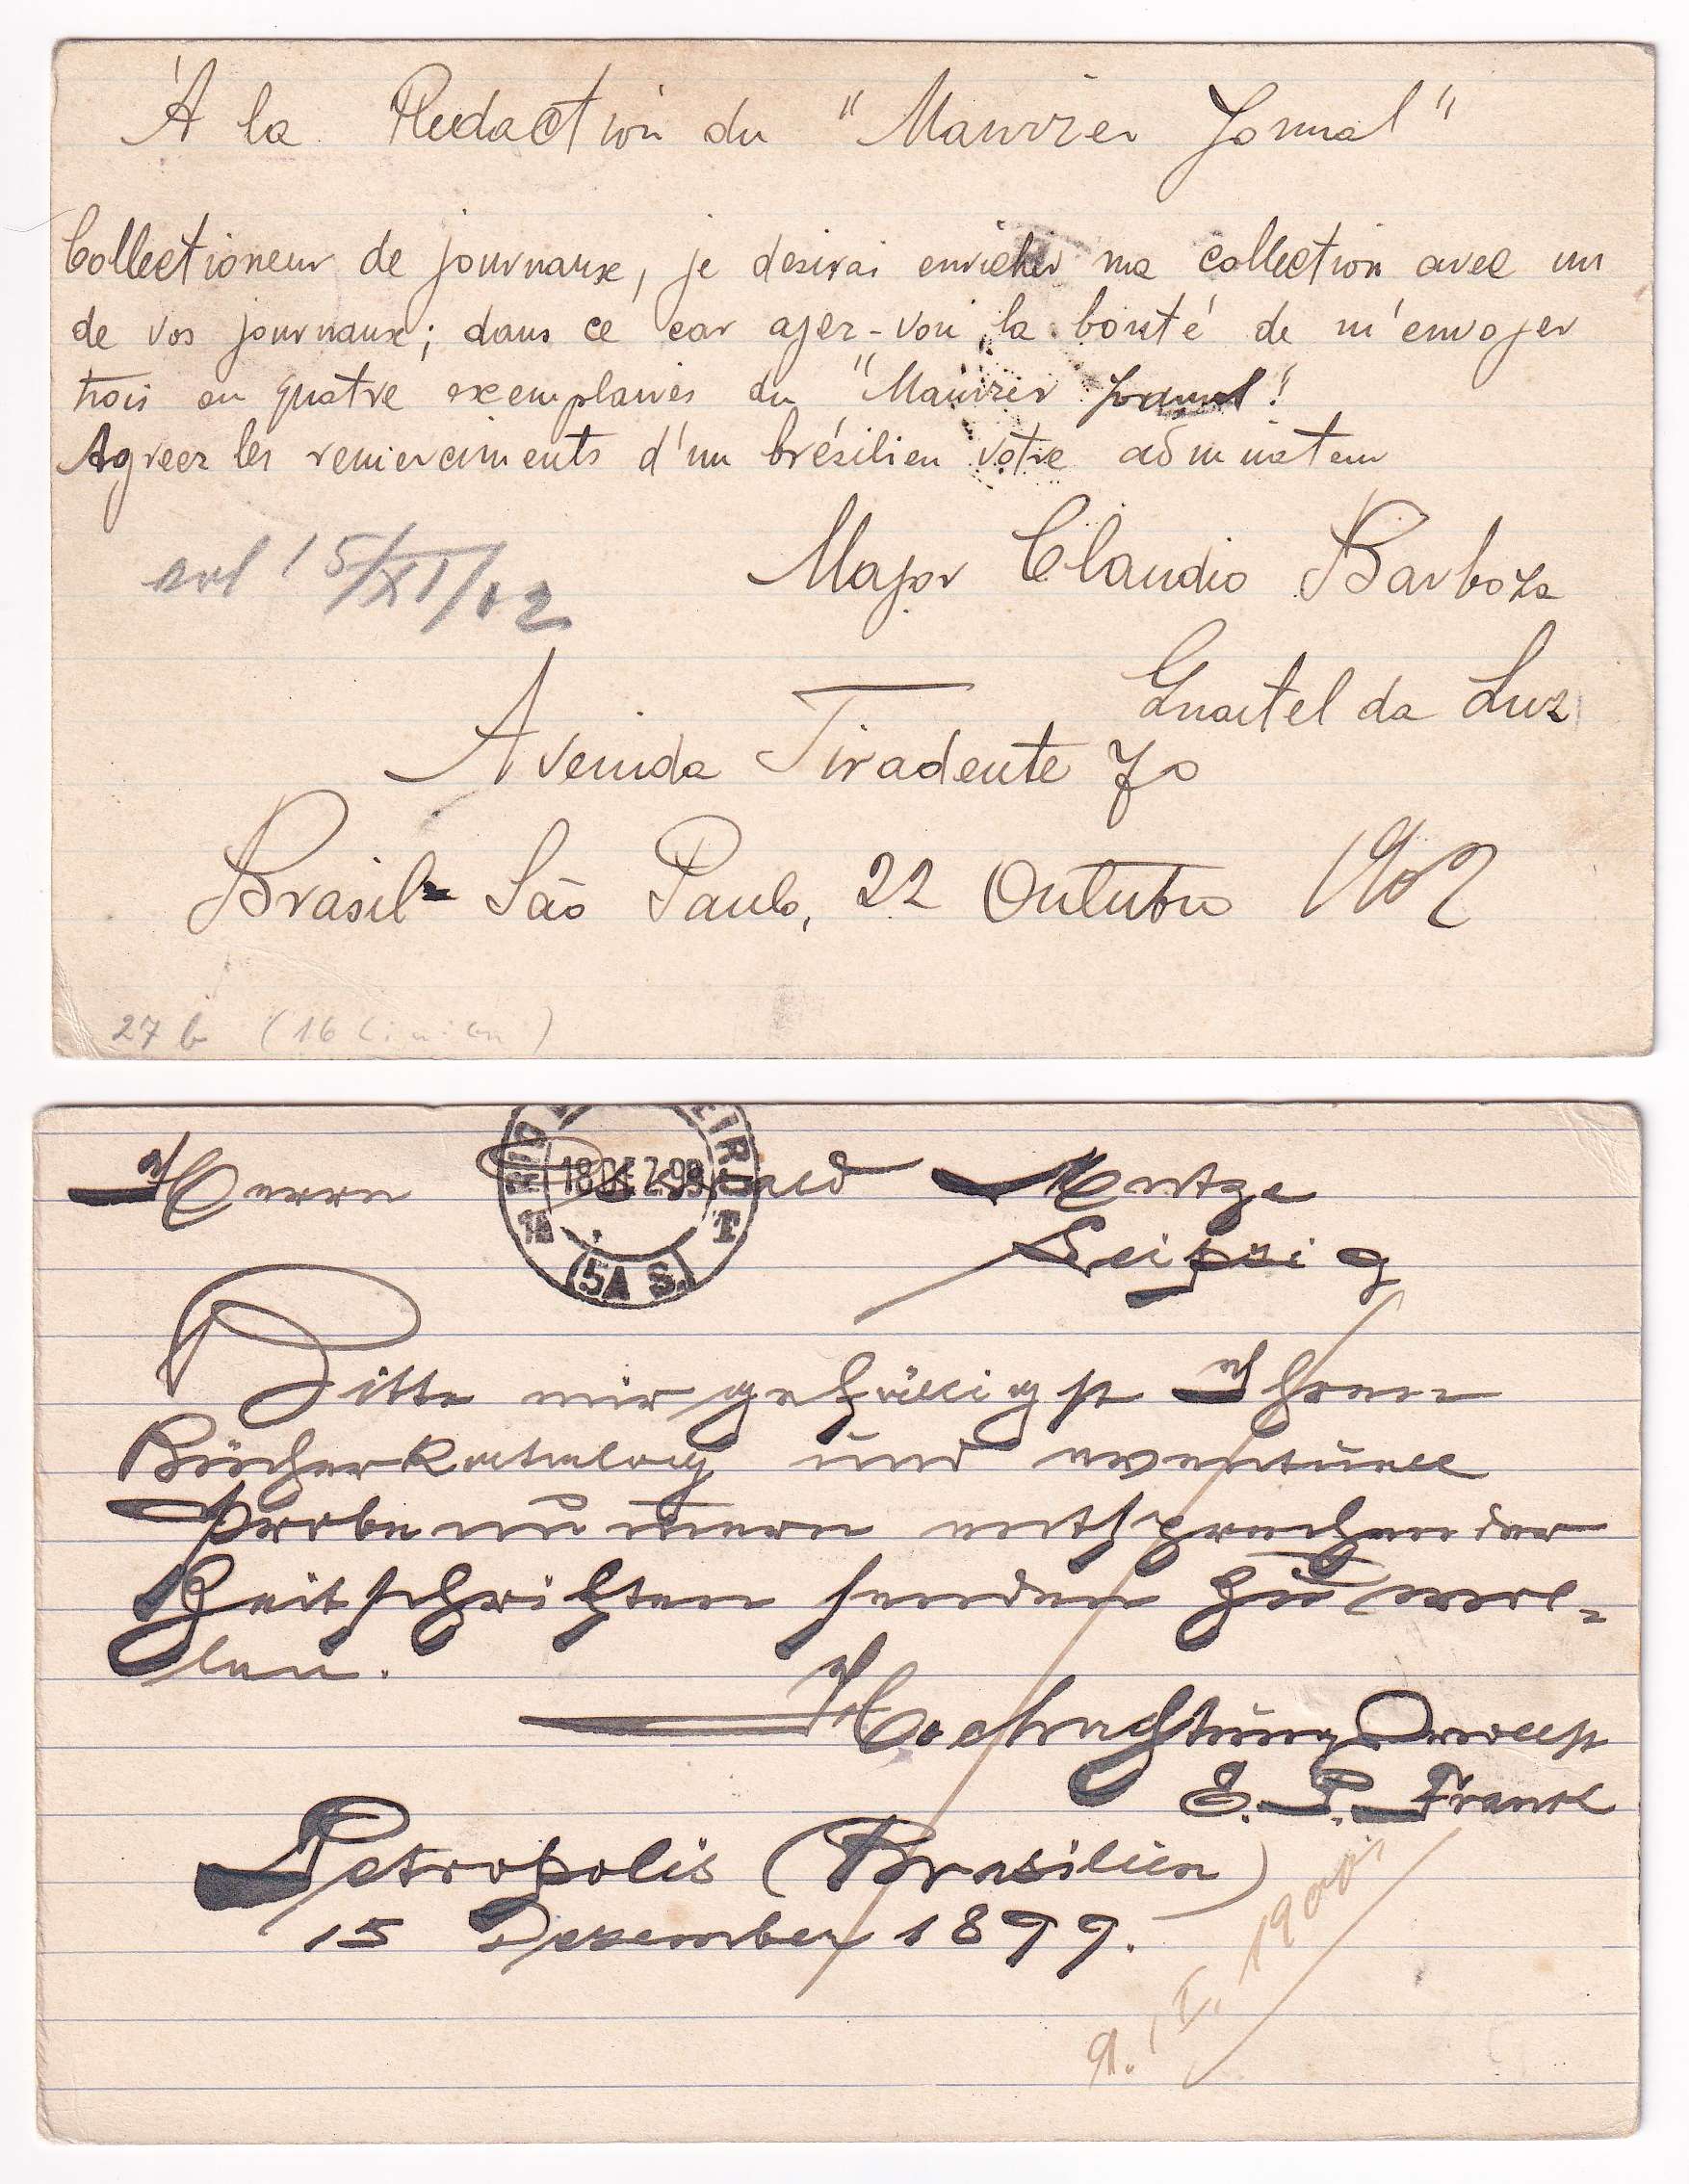 À la Redaction du "Mawrzer Jornal"
Collectioneur de journaux, je desirai enricher ma collection avec un
de vos journaux; dans ce car ayez-vou la bonté de m'envoyer
trois ou quatre exemplaires du "Mawrzer Jornal"
Agreez les remerciments d'un brésilien votre admirateur
Major Claudio Barboza
erl 15/XI/02
Quartel da Luz
Avenida Tiradente 70
Brasil - São Paulo, 22 Outubro 1902
27 b (16 Linien)
Herrn Oswald Mutze
18 DEZ 99
5A S.
Leipzig
Bitte mir gefälligst Ihren
Bücherkatalog und eventuell
Probenum̅ern entsprechender
Zeitschriften senden zu wol-
len.
Hochachtungsvollst
E. P. Frank
Petropolis (Brasilien)
15 Dezember 1899.
9. I. 1900.